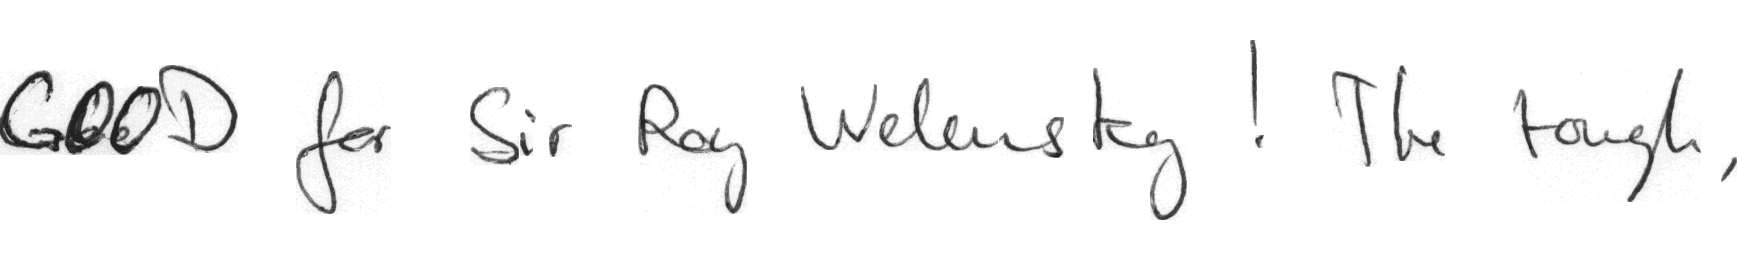 GOOD for Sir Roy Welensky! The tough,